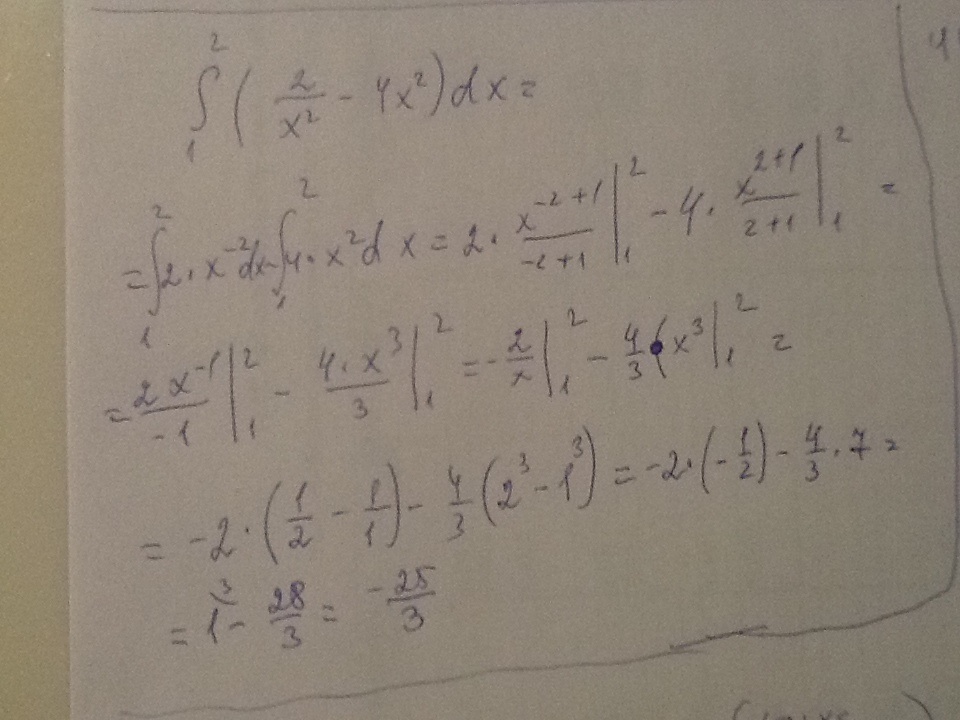 ∫₁² ( 2/x² - 4x² ) dx =
= ∫₁² 2 · x⁻² dx - ∫₁² 4 · x² dx = 2 · x⁻²⁺¹/(-2+1) |₁² - 4 · x²⁺¹/(2+1) |₁² =
= 2x⁻¹/(-1) |₁² - 4 · x³/3 |₁² = - 2/x |₁² - 4/3 ( x³ |₁² =
= -2 · ( 1/2 - 1/1 ) - 4/3 ( 2³ - 1³ ) = -2 · ( - 1/2 ) - 4/3 · 7 =
= 1³ - 28/3 = -25/3